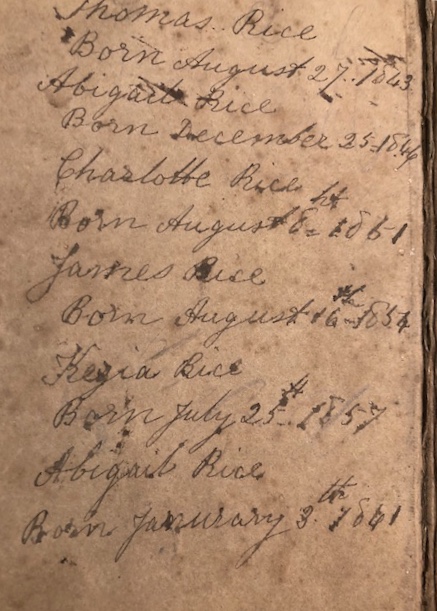 Thomas Rice
Born August 27. 1843
Abigail Rice
Born December 25 1846
Charlotte Rice
Born August 8 ht 1851
James Rice
Born August 16 th 1854
Kezia Rice
Born July 25 th 1857
Abigail Rice
Born Janurary 3 th 1861